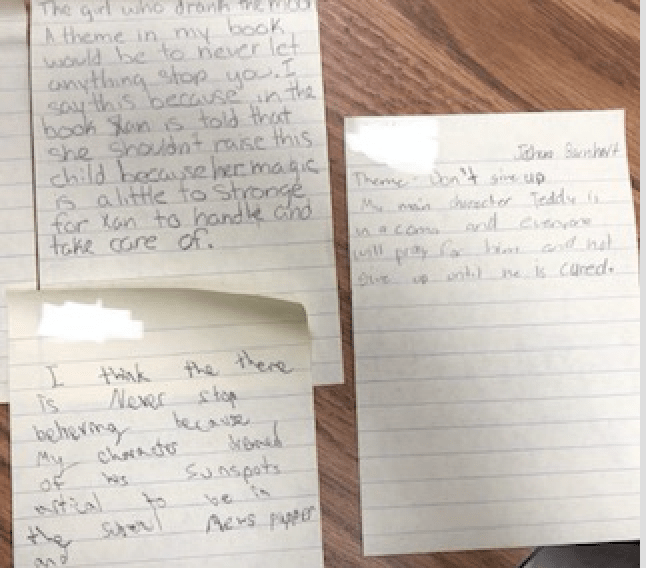 The girl who drank the moon
A theme in my book
would be to never let
anything stop you. I
say this because in the
book Xan is told that
she shouldn't raise this
child because her magic
is a little to stronge
for Xan to handle and
take care of.
Theme- Don't give up
My main character Teddy is
in a coma and everyone
will pray for him and not
give up until he is cured.
I think the
is Never stop
because
My character dremed
of his Sunspots
to be in
the News papper
and